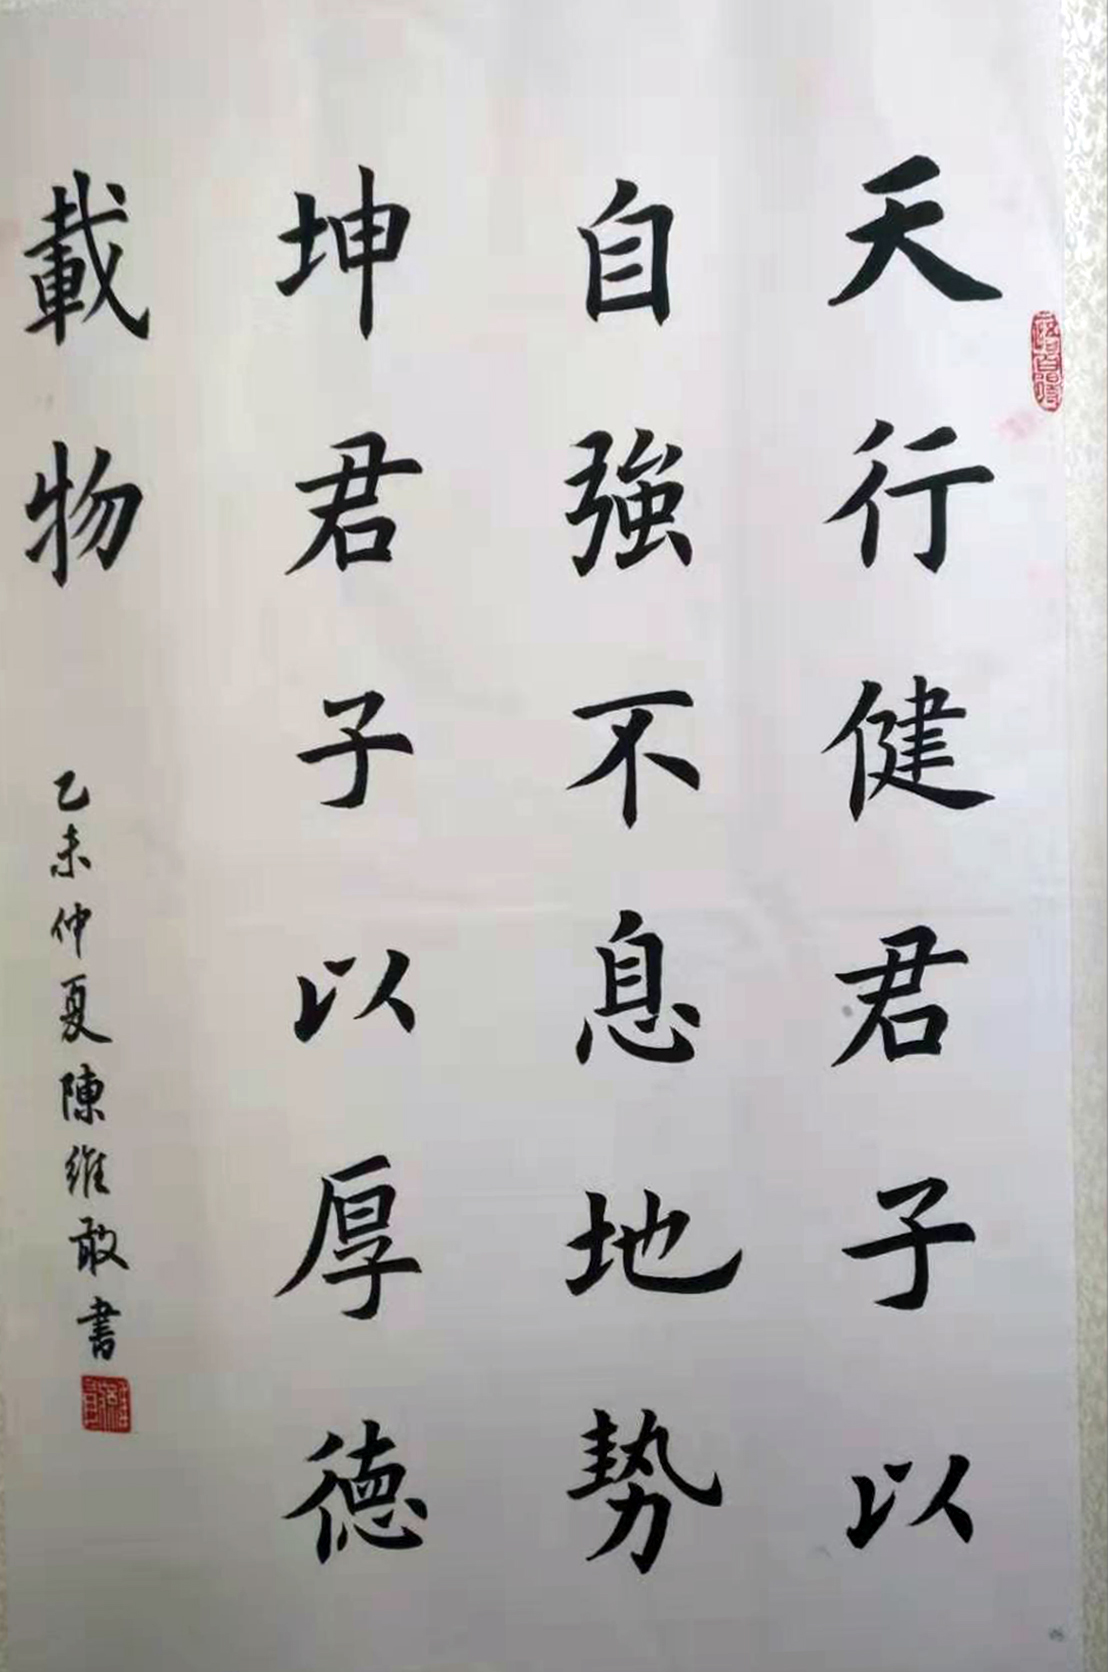 天行健君子以
自強不息地勢
坤君子以厚德
載物
乙未仲夏陳維敢書